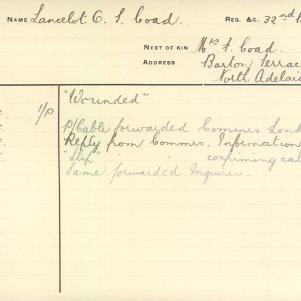 NAME Lancelot C. S. Coad. REG. &C. 32nd
NEXT OF KIN Mrs F. Coad.
ADDRESS Barton Terrace
North Adelai
1/P "Wounded"
P/Cable forwarded Commrs Lond
Reply from Commrs. Information
"Slip" " " confirming cal
Same forwarded Inquirer.